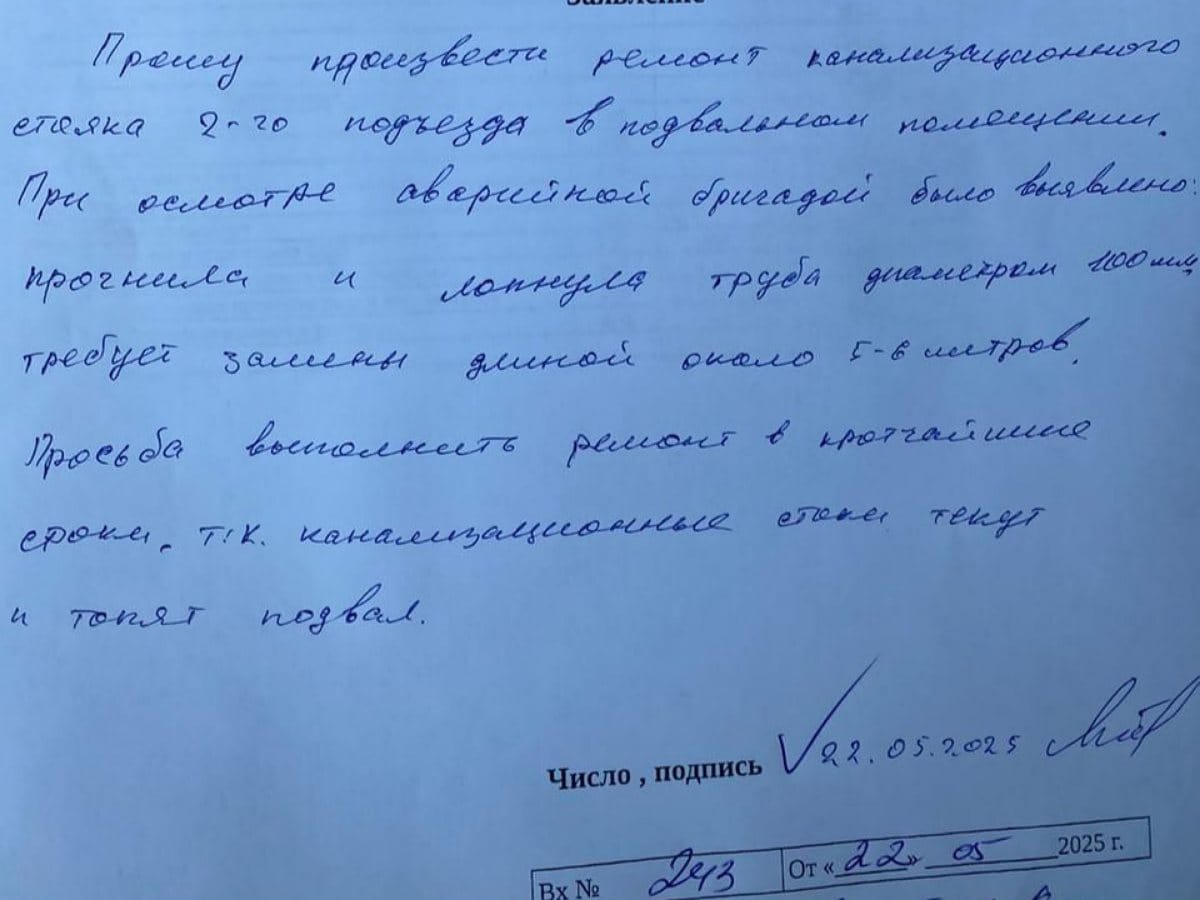 Заявление
Прошу произвести ремонт канализационного
стояка 2-го подъезда в подвальном помещении.
При осмотре аварийной бригадой было выявлено:
прогнила и лопнула труба диаметром 100 мм,
требует замены длиной около 5-6 метров.
Просьба выполнить ремонт в кротчайшие
сроки. т.к. канализационные стоки текут
и топят подвал.
Число , подпись 22.05.2025
Вх № 243 От «22» 05 2025 г.